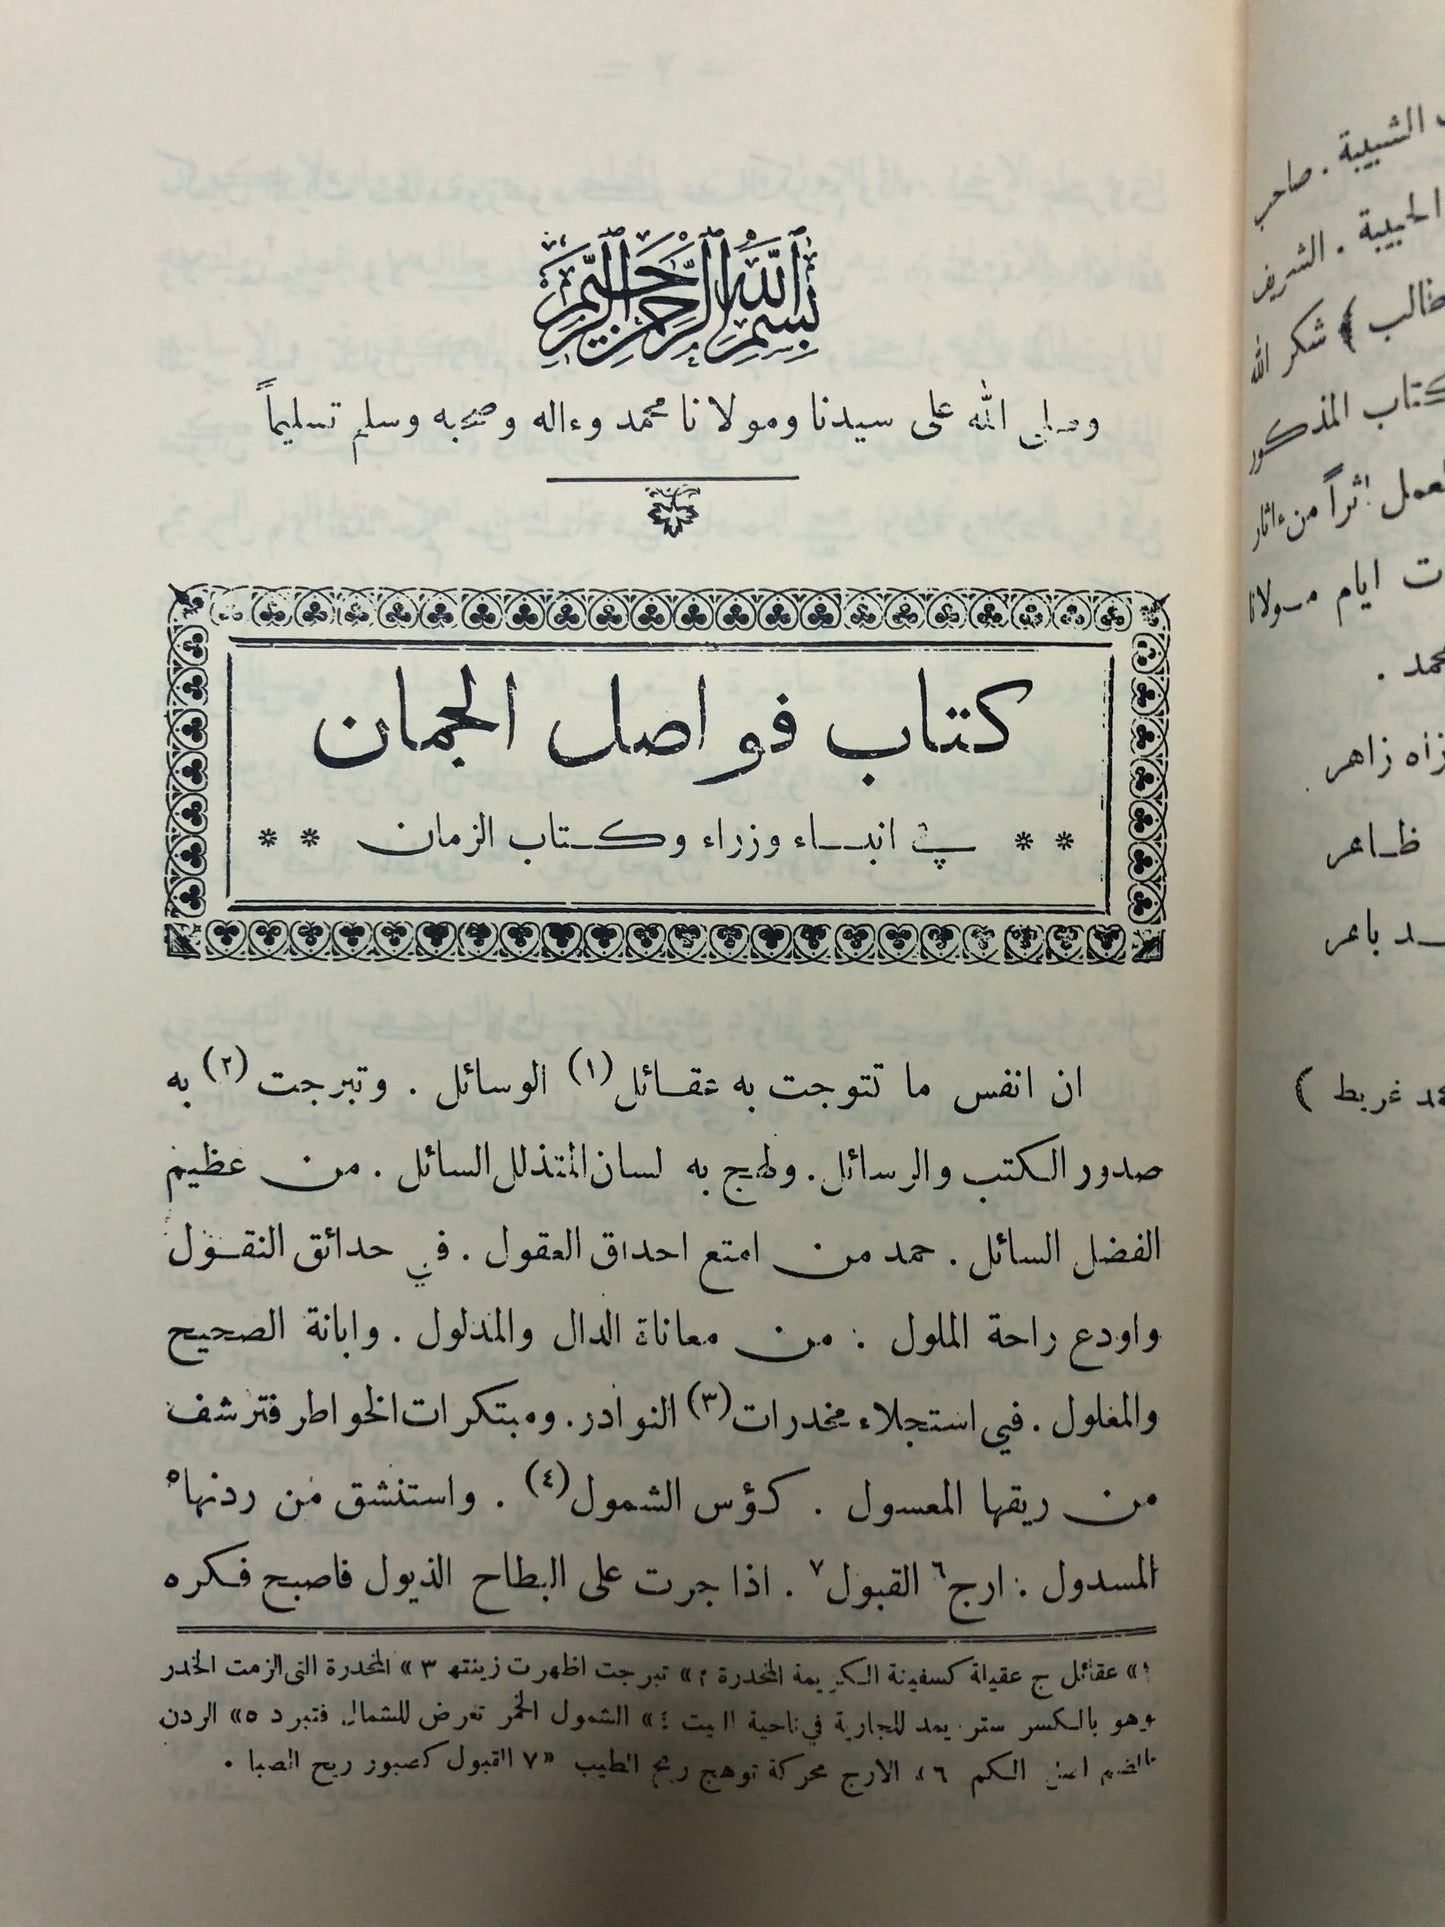 بسم الله الرحمن الرحيم
وصلى الله على سيدنا ومولانا محمد وءاله وصحبه وسلم تسليماً
كتاب فواصل الجمان
** في انبـاء وزراء وكـتاب الزمان **
ان انفس ما تتوجت به عقائل (١) الوسائل . وتبرجت (٢) به
صدور الكتب والرسائل. ولهج به لسان المتذلل السائل . من عظيم
الفضل السائل . حمد من امتع احداق العقول . في حدائق النقول
واودع راحة الملول . من معاناة الدال والمدلول . وابانة الصحيح
والمعلول . في استجلاء مخدرات (٣) النوادر. ومبتكرات الخواطر فترشف
من ريقها المعسول . كؤس الشمول (٤) . واستنشق من ردنها ٥
المسدول . ارج ٦ القبول ٧ . اذا جرت على البطاح الذيول فاصبح فكره
١» عقائل ج عقيلة كسفينة الكريمة المخدرة ٢» تبرجت اظهرت زينتها ٣» المخدرة التي الزمت الخدر
وهو بالكسر ستر يمد للجارية في ناحية البيت ٤» الشمول الخمر تعرض للشمال فتبرد ٥» الردن
بالضم اصل الكم ٦» الارج محركة توهج ريح الطيب «٧ القبول كصبور ريح الصبا .
الشبيبة . صاحب
الحبيبة . الشريف
طالب ) شكر الله
كتاب المذكور
اثراً من ءاثار
ايام مولانا
محمد .
زاهر
غريط )